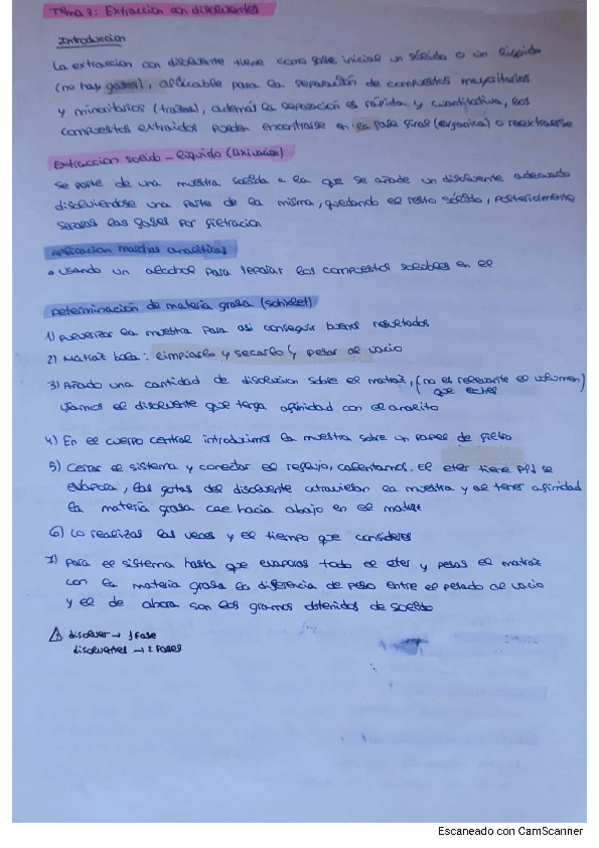 Tema 7: Extraccion con disolventes
Introduccion
La extraccion con disolvente tiene como fase inicial un sólido o un liquido
(no hay gases), aplicable para la separación de compuestos mayoritarios
y minoritarios (trazas), además la separacion es rápida y cuantitativa, los
compuestos extraidos pueden encontrarse en la fase final (organica) o reextraerse
Extraccion solido - liquido (lixiviacion)
Se parte de una muestra solida a la que se añade un disolvente adecuado
disolviendose una parte de la misma, quedando el resto sólido, posteriormente
separas las fases por filtracion
Aplicacion marchas analiticas
• Usando un alcohol para separar los compuestos solubles en el
Determinación de materia grasa (soxhlet)
1) Pulverizar la muestra para asi conseguir buenos resultados
2) Matraz bola: limpiarlo y secarlo y pesar al vacio
3) Añado una cantidad de disolucion sobre el matraz, (no es relevante el volumen)
que eches
Usamos el disolvente que tenga afinidad con el analito
4) En el cuerpo central introducimos la muestra sobre un papel de filtro
5) Cerrar el sistema y conectar el reflujo, calentamos. El eter tiene se
evapora, las gotas del disolvente atraviesan la muestra y al tener afinidad
la materia grasa cae hacia abajo en el matraz
6) Lo realizas las veces y el tiempo que consideres
7) Para el sistema hasta que evaporas todo el eter y pesas el matraz
con la materia grasa la diferencia de peso entre el pesado al vacio
y el de ahora son los gramos obtenidos de soluto
⚠ disolver → 1 fase
disolventes → 2 fases
Escaneado con CamScanner